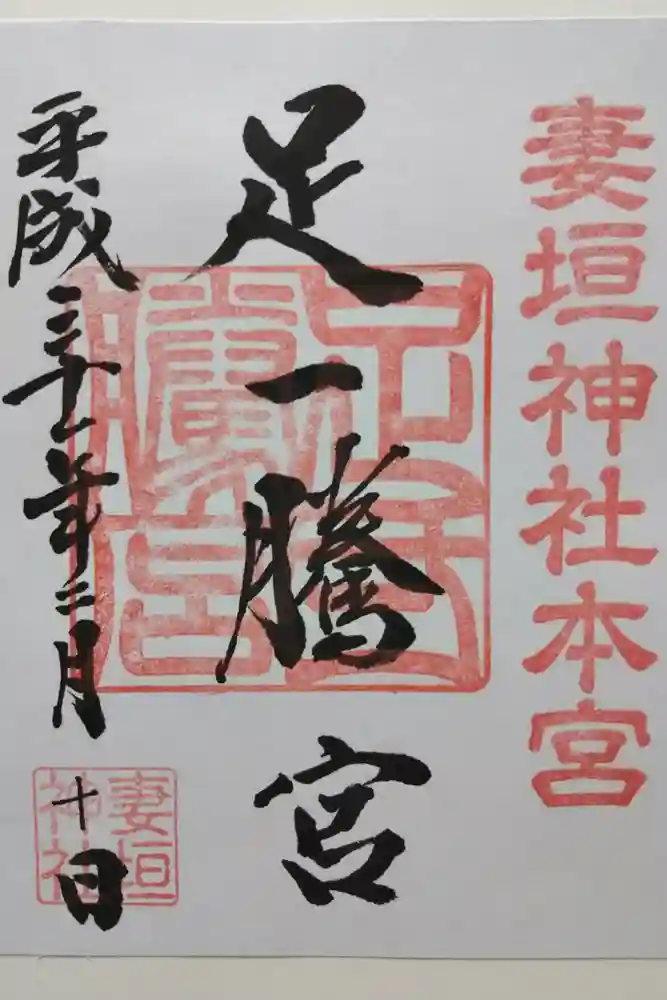 妻垣神社本宮
足一騰宮
平成三十一年二月十日
妻垣
神社